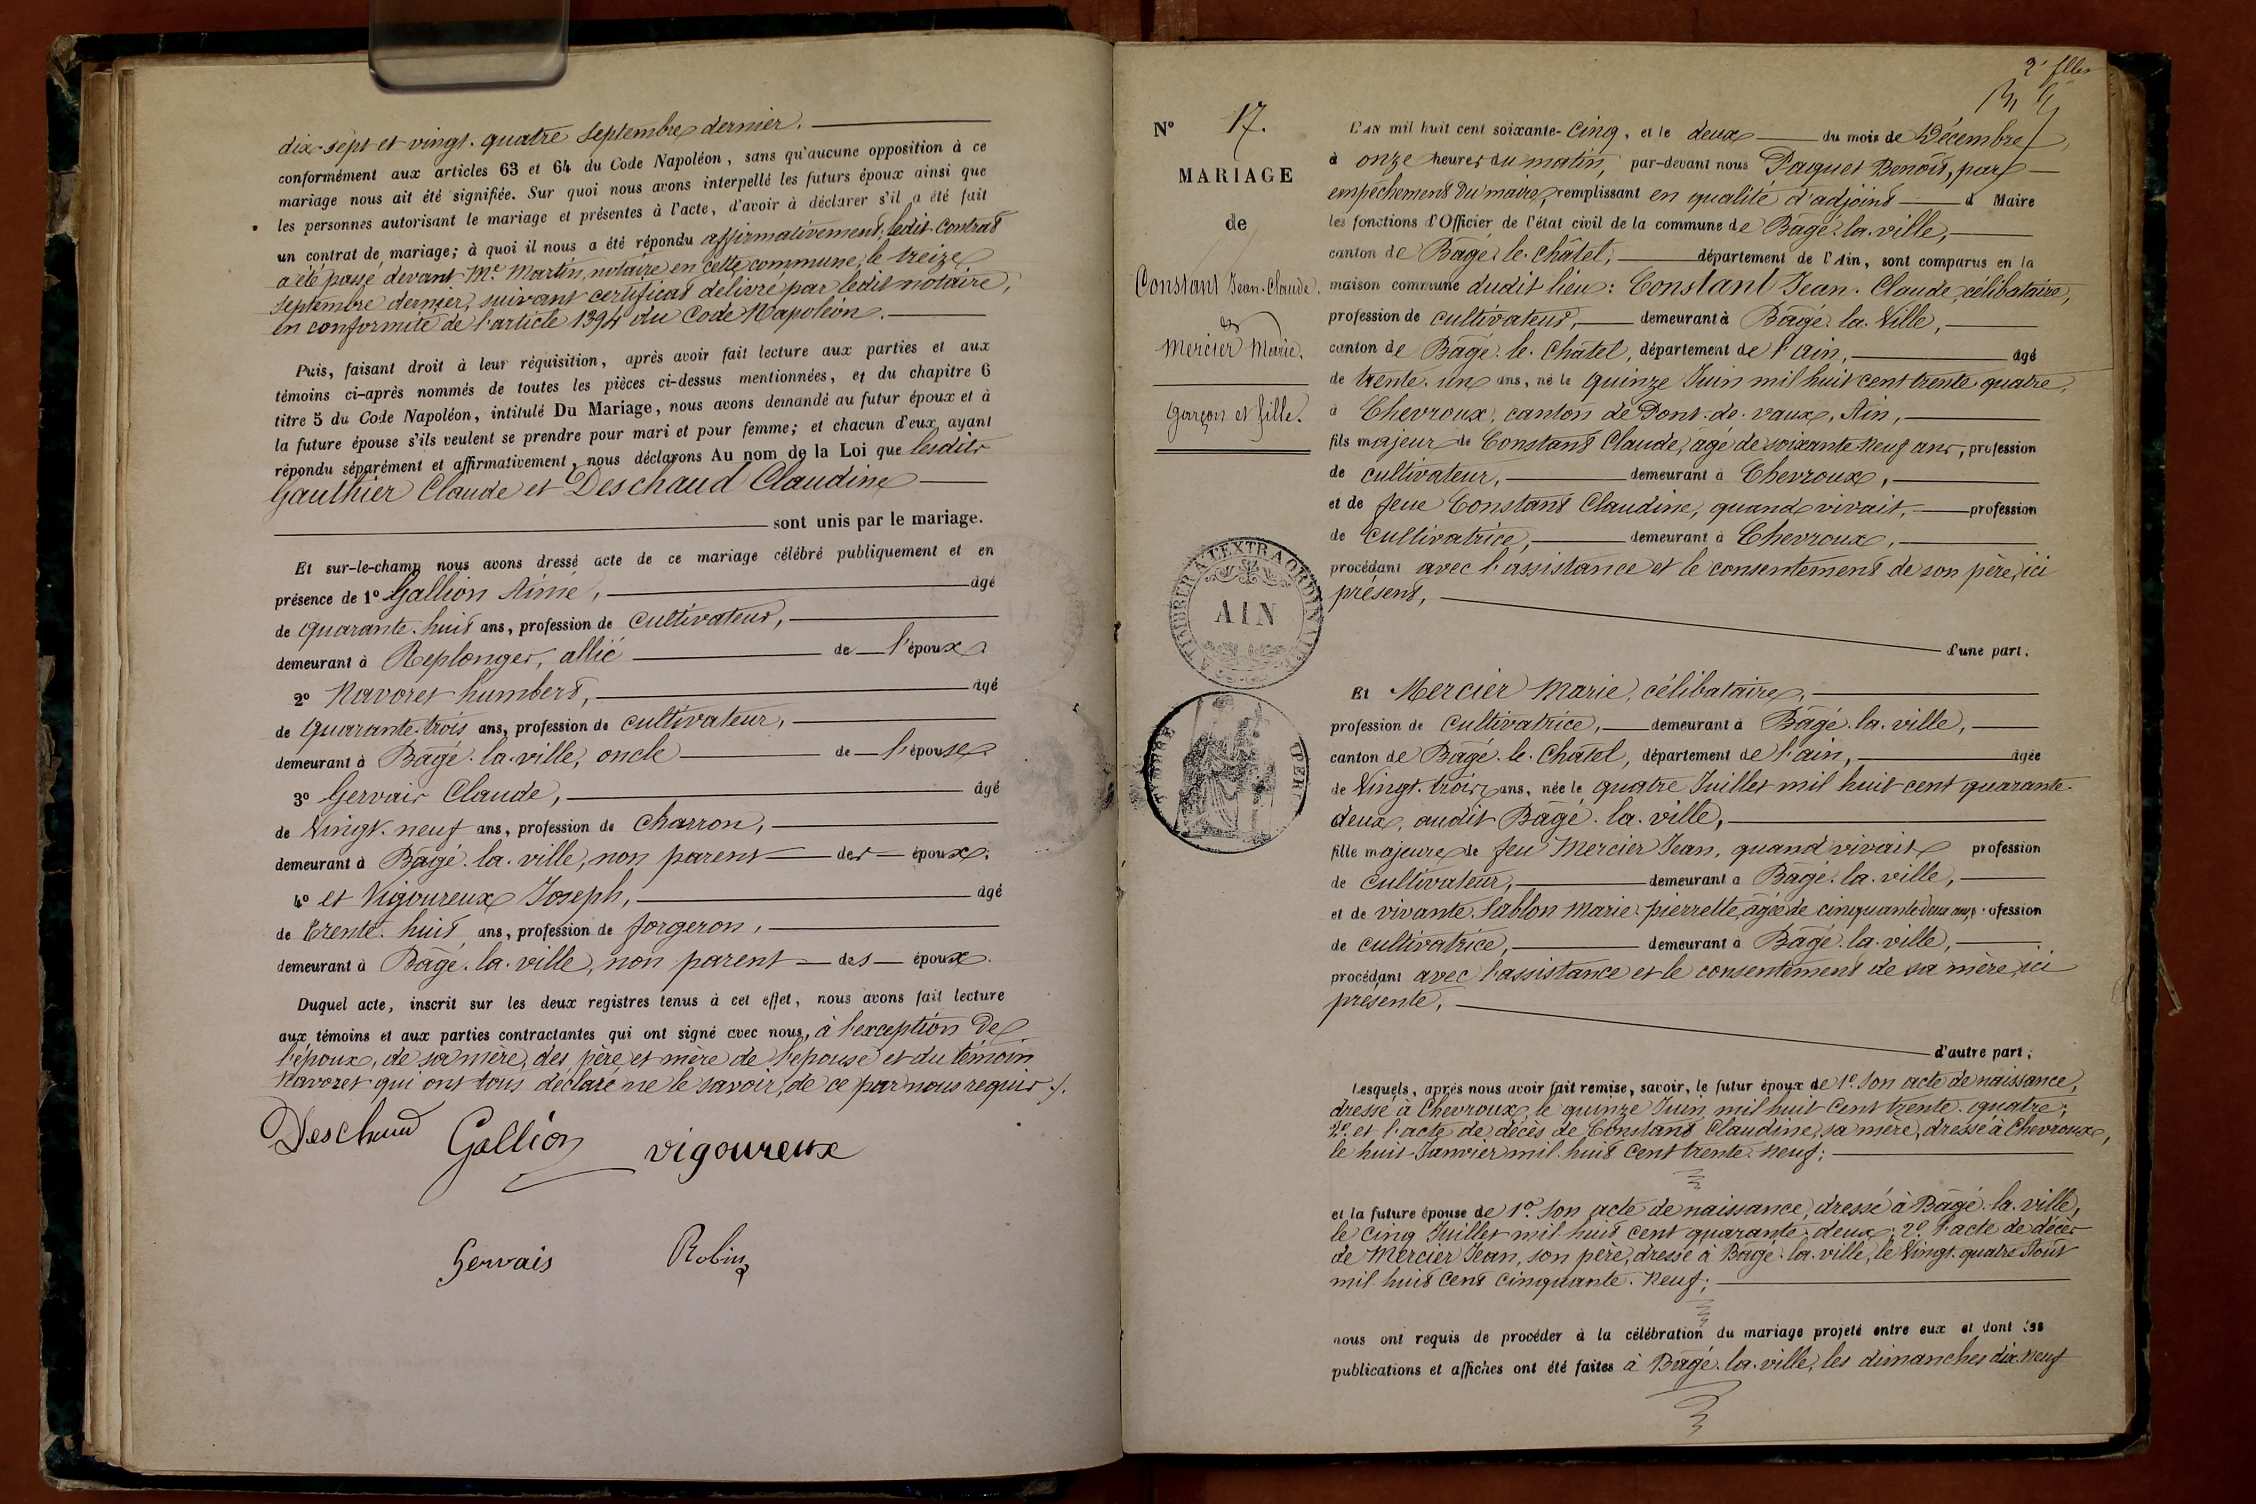 dix-sept et vingt-quatre Septembre dernier.
conformément aux articles 63 et 64 du Code Napoléon, sans qu'aucune opposition à ce
mariage nous ait été signifiée. Sur quoi nous avons interpellé les futurs époux ainsi que
les personnes autorisant le mariage et présentes à l'acte, d'avoir à déclarer s'il a été fait
un contrat de mariage; à quoi il nous a été répondu affirmativement; ledit contrat
a été passé devant Me Martin, notaire en cette commune, le treize
Septembre dernier, suivant certificat délivré par ledit notaire,
en conformité de l'article 1394 du Code Napoléon.
Puis, faisant droit à leur réquisition, après avoir fait lecture aux parties et aux
témoins ci-après nommés de toutes les pièces ci-dessus mentionnées, et du chapitre 6
titre 5 du Code Napoléon, intitulé Du Mariage, nous avons demandé au futur époux et à
la future épouse s'ils veulent se prendre pour mari et pour femme; et chacun d'eux ayant
répondu séparément et affirmativement, nous déclarons Au nom de la Loi que lesdits
Gauthier Claude et Deschaud Claudine
sont unis par le mariage.
Et sur-le-champ nous avons dressé acte de ce mariage célébré publiquement et en
présence de 1º Gallion Aimé, âgé
de quarante-huit ans, profession de cultivateur,
demeurant à Replonges, allié de l'époux
2º Navoret humbert, âgé
de Quarante-trois ans, profession de cultivateur,
demeurant à Bâgé-la-ville, oncle de l'épouse
3º Gervais Claude, âgé
de Vingt-neuf ans, profession de charron,
demeurant à Bâgé-la-ville, non parent des époux.
4º et Vigoureux Joseph, âgé
de Trente-huit ans, profession de forgeron,
demeurant à Bâgé-la-ville, non parent des époux.
Duquel acte, inscrit sur les deux registres tenus à cet effet, nous avons fait lecture
aux témoins et aux parties contractantes qui ont signé avec nous, à l'exception de
l'époux, de sa mère, des père et mère de l'épouse et du témoin
Navoret qui ont tous déclaré ne le savoir, de ce par nous requis ./.
Deschaud Gallion vigoureux
Gervais Robin
Nº 17.
MARIAGE
de
Constant Jean-Claude.
et
Mercier Marie.
Garçon et fille.
TIMBRE A L'EXTRAORDINAIRE
AIN
TIMBRE IMPÉRIAL
L'AN mil huit cent soixante-cinq, et le deux du mois de Décembre,
à onze heures du matin, par-devant nous Paquet Benoît, par
empêchement du maire, remplissant en qualité d'adjoint d Maire
les fonctions d'Officier de l'état civil de la commune de Bâgé-la-ville,
canton de Bâgé-le-châtel, département de l'Ain, sont comparus en la
maison commune dudit lieu: Constant Jean-Claude, célibataire,
profession de cultivateur, demeurant à Bâgé-la-Ville,
canton de Bâgé-le-Châtel, département de l'ain, âgé
de trente-un ans, né le quinze Juin mil huit cent trente-quatre,
à Chevroux, canton de Pont-de-vaux, Ain,
fils majeur de Constant Claude, âgé de soixante-neuf ans, profession
de cultivateur, demeurant à Chevroux,
et de feue Constant Claudine, quand vivait, profession
de cultivatrice, demeurant à Chevroux,
procédant avec l'assistance et le consentement de son père, ici
présent,
d'une part.
Et Mercier Marie, célibataire,
profession de cultivatrice, demeurant à Bâgé-la-ville,
canton de Bâgé-le-Châtel, département de l'ain, âgée
de Vingt-trois ans, née le quatre Juillet mil huit cent quarante-
deux, audit Bâgé-la-ville,
fille majeure de feu Mercier Jean, quand vivait profession
de cultivateur, demeurant à Bâgé-la-ville,
et de vivante Sablon Marie-pierrette, âgée de cinquante-deux ans, profession
de cultivatrice, demeurant à Bâgé-la-ville,
procédant avec l'assistance et le consentement de sa mère, ici
présente,
d'autre part;
Lesquels, après nous avoir fait remise, savoir, le futur époux de 1º. Son acte de naissance,
dressé à Chevroux, le quinze Juin mil huit cent trente-quatre;
2º. et l'acte de décès de Constant Claudine, sa mère, dressé à Chevroux,
le huit Janvier mil huit cent trente-neuf;
et la future épouse de 1º. Son acte de naissance, dressé à Bâgé-la-ville,
le cinq Juillet mil huit cent quarante-deux; 2º. l'acte de décès
de Mercier Jean, son père, dressé à Bâgé-la-ville, le Vingt-quatre Août
mil huit cent cinquante-neuf;
nous ont requis de procéder à la célébration du mariage projeté entre eux et dont les
publications et affiches ont été faites à Bâgé-la-ville, les dimanches dix-neuf